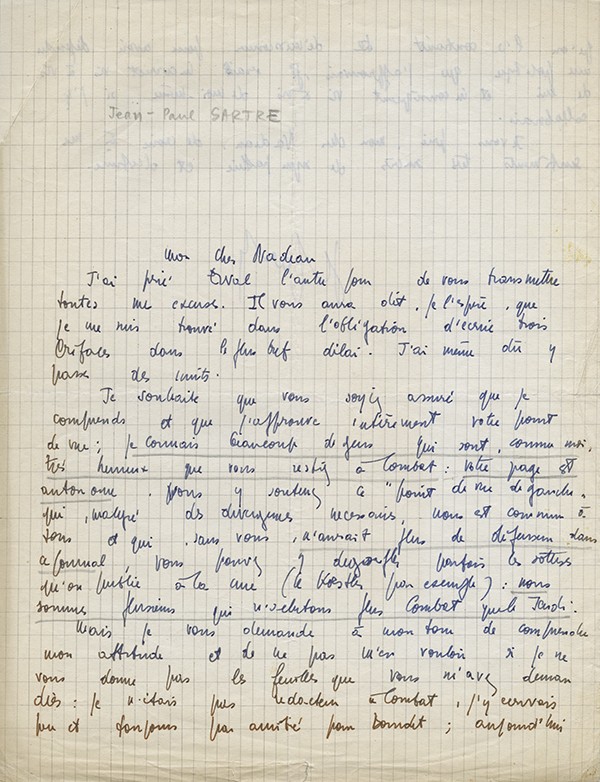 Jean-Paul SARTRE
Mon cher Nadeau
J'ai prié l'autre jour de vous transmettre
toutes mes excuses. Il vous aura dit, je l'espère, que
je me suis trouvé dans l'obligation d'écrire trois
Préfaces dans le plus bref délai. J'ai même dû y
passer des nuits.
Je souhaite que vous soyez assuré que je
comprends et que j'approuve entièrement votre point
de vue ; je connais beaucoup de gens qui sont, comme moi,
très heureux que vous restiez à Combat : votre page est
autonome. Vous y soutenez ce "point de vue de gauche"
qui, malgré des divergences nécessaires, nous est commun à
tous et qui, sans vous, n'aurait plus de défenseur dans
ce journal ; vous pouvez y parfois les sottises
qu'on publie à la une (le Koestler par exemple) : nous
sommes plusieurs qui n'achetons plus Combat que le Jeudi.
Mais je vous demande à mon tour de comprendre
mon attitude et de ne pas m'en vouloir si je ne
vous donne pas les feuilles que vous m'avez deman
dées : je n'étais pas rédacteur à Combat, j'y écrivais
peu et toujours par amitié pour Bourdet ; aujourd'hui